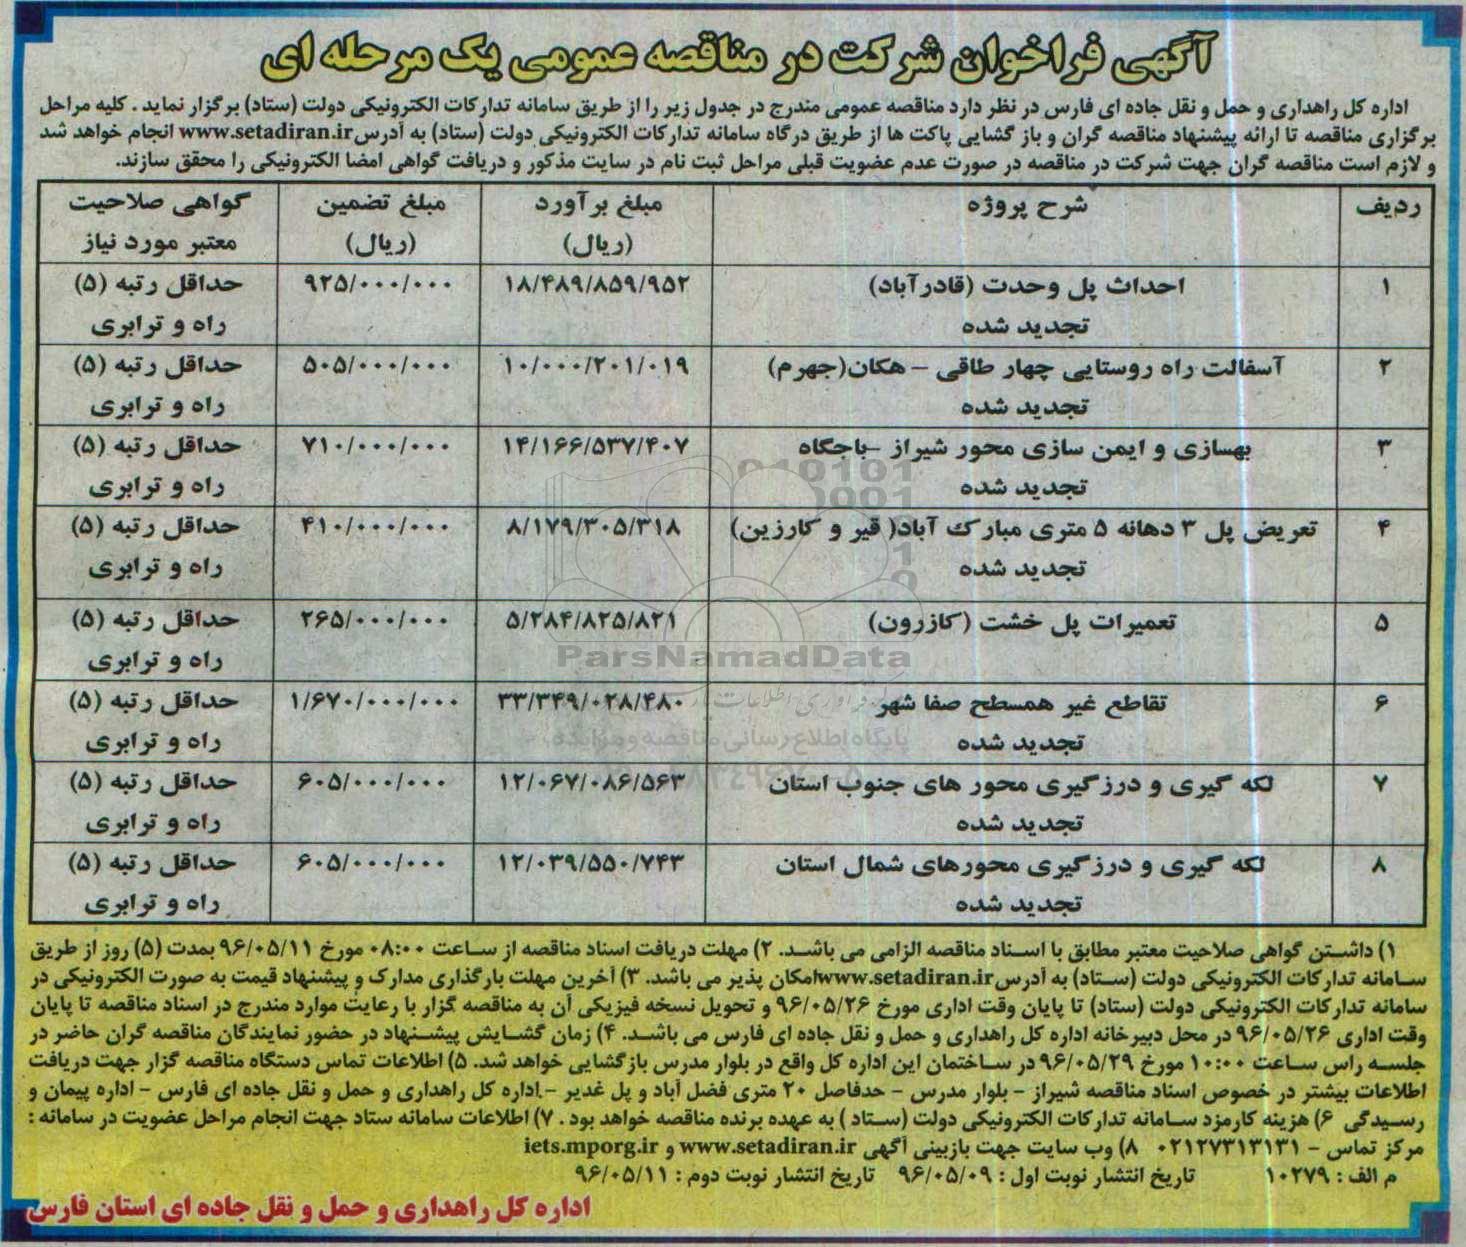 آگهی فراخوان شرکت در مناقصه عمومی یک مرحله ای
اداره کل راهداری و حمل و نقل جاده ای فارس در نظر دارد مناقصه عمومی مندرج در جدول زیر را از طریق سامانه تدارکات الکترونیکی دولت (ستاد) برگزار نماید . کلیه مراحل
برگزاری مناقصه تا ارائه پیشنهاد مناقصه گران و باز گشایی پاکت ها از طریق درگاه سامانه تدارکات الکترونیکی دولت (ستاد) به آدرس www.setadiran.ir انجام خواهد شد
و لازم است مناقصه گران جهت شرکت در مناقصه در صورت عدم عضویت قبلی مراحل ثبت نام در سایت مذکور و دریافت گواهی امضا الکترونیکی را محقق سازند.
ردیف شرح پروژه مبلغ برآورد مبلغ تضمین گواهی صلاحیت
(ریال) (ریال) معتبر مورد نیاز
۱ احداث پل وحدت (قادرآباد) ۱۸/۴۸۹/۸۵۹/۹۵۲ ۹۲۵/۰۰۰/۰۰۰ حداقل رتبه (۵)
تجدید شده راه و ترابری
۲ آسفالت راه روستایی چهار طاقی – هکان(جهرم) ۱۰/۰۰۰/۲۰۱/۰۱۹ ۵۰۵/۰۰۰/۰۰۰ حداقل رتبه (۵)
تجدید شده راه و ترابری
۳ بهسازی و ایمن سازی محور شیراز –باجگاه ۱۴/۱۶۶/۵۳۷/۴۰۷ ۷۱۰/۰۰۰/۰۰۰ حداقل رتبه (۵)
تجدید شده راه و ترابری
۴ تعریض پل ۳ دهانه ۵ متری مبارک آباد( قیر و کارزین) ۸/۱۷۹/۳۰۵/۳۱۸ ۴۱۰/۰۰۰/۰۰۰ حداقل رتبه (۵)
تجدید شده راه و ترابری
۵ تعمیرات پل خشت (کازرون) ۵/۲۸۴/۸۲۵/۸۲۱ ۲۶۵/۰۰۰/۰۰۰ حداقل رتبه (۵)
راه و ترابری
ParsNamadData
۶ تقاطع غیر همسطح صفا شهر ۳۳/۳۴۹/۰۲۸/۴۸۰ ۱/۶۷۰/۰۰۰/۰۰۰ حداقل رتبه (۵)
تجدید شده راه و ترابری
پایگاه اطلاع رسانی مناقصه و مزایده
۷ لکه گیری و درزگیری محور های جنوب استان ۱۲/۰۶۷/۰۸۶/۵۶۳ ۶۰۵/۰۰۰/۰۰۰ حداقل رتبه (۵)
تجدید شده راه و ترابری
۸ لکه گیری و درزگیری محورهای شمال استان ۱۲/۰۳۹/۵۵۰/۷۴۳ ۶۰۵/۰۰۰/۰۰۰ حداقل رتبه (۵)
تجدید شده راه و ترابری
۱) داشتن گواهی صلاحیت معتبر مطابق با اسناد مناقصه الزامی می باشد. ۲) مهلت دریافت اسناد مناقصه از ساعت ۰۸:۰۰ مورخ ۹۶/۰۵/۱۱ بمدت (۵) روز از طریق
سامانه تدارکات الکترونیکی دولت (ستاد) به آدرس www.setadiran.ir امکان پذیر می باشد. ۳) آخرین مهلت بارگذاری مدارک و پیشنهاد قیمت به صورت الکترونیکی در
سامانه تدارکات الکترونیکی دولت (ستاد) تا پایان وقت اداری مورخ ۹۶/۰۵/۲۶ و تحویل نسخه فیزیکی آن به مناقصه گزار با رعایت موارد مندرج در اسناد مناقصه تا پایان
وقت اداری ۹۶/۰۵/۲۶ در محل دبیرخانه اداره کل راهداری و حمل و نقل جاده ای فارس می باشد. ۴) زمان گشایش پیشنهاد در حضور نمایندگان مناقصه گران حاضر در
جلسه راس ساعت ۱۰:۰۰ مورخ ۹۶/۰۵/۲۹ در ساختمان این اداره کل واقع در بلوار مدرس بازگشایی خواهد شد. ۵) اطلاعات تماس دستگاه مناقصه گزار جهت دریافت
اطلاعات بیشتر در خصوص اسناد مناقصه شیراز – بلوار مدرس – حدفاصل ۲۰ متری فضل آباد و پل غدیر – اداره کل راهداری و حمل و نقل جاده ای فارس – اداره پیمان و
رسیدگی ۶) هزینه کارمزد سامانه تدارکات الکترونیکی دولت (ستاد ) به عهده برنده مناقصه خواهد بود . ۷) اطلاعات سامانه ستاد جهت انجام مراحل عضویت در سامانه :
مرکز تماس – ۰۲۱۲۷۳۱۳۱۳۱ ۸) وب سایت جهت بازبینی آگهی www.setadiran.ir و iets.mporg.ir
م الف : ۱۰۲۷۹ تاریخ انتشار نوبت اول : ۹۶/۰۵/۰۹ تاریخ انتشار نوبت دوم : ۹۶/۰۵/۱۱
اداره کل راهداری و حمل و نقل جاده ای استان فارس